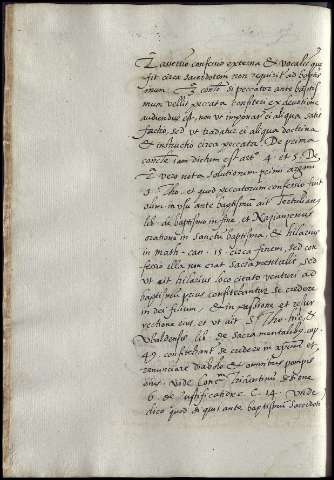 3ª assertio confessio externa & vocalis quę
fit circa sacerdotem non requirit ad baptis
mum. 3ª conclº. si peccator ante baptis
mum vellit peccata confiteri ex devotione
audiendus est, non vt imponat ei aliqua satis
factio, sed vt tradatur ei aliqua doctrina
& instructio circa peccata. De prima
conclᵉ iam dictum est artº 4 et 5. De
vero nota solutionem primi argumti
S. Tho. et quod peccatorum confessio fuit
cum in usu ante baptismũ ait Tertulianꝰ
lib. de baptismo in fine et Nazianzenus
oratione in sanctũ baptisma, & hilarius
in math. can. 15. circa finem, sed con
fessio illa non erat sacramentalis sed
vt ait hilarius loco citato venturi ad
baptismũ prius confitebantur se credere
in dei filium, & in passione et resur
rectione eius, et vt ait S. Tho. hic, &
Vbaldensis lib. de sacramentalibꝰ cap.
49. confitebant de credere in xp̃um et
renunciare diabolo & omnibus pompis
eius. vide Conc. tridentinũ sessione
6. de justificatione C. 14. Vnde
dico quod si quis ante baptismũ sacerdoti